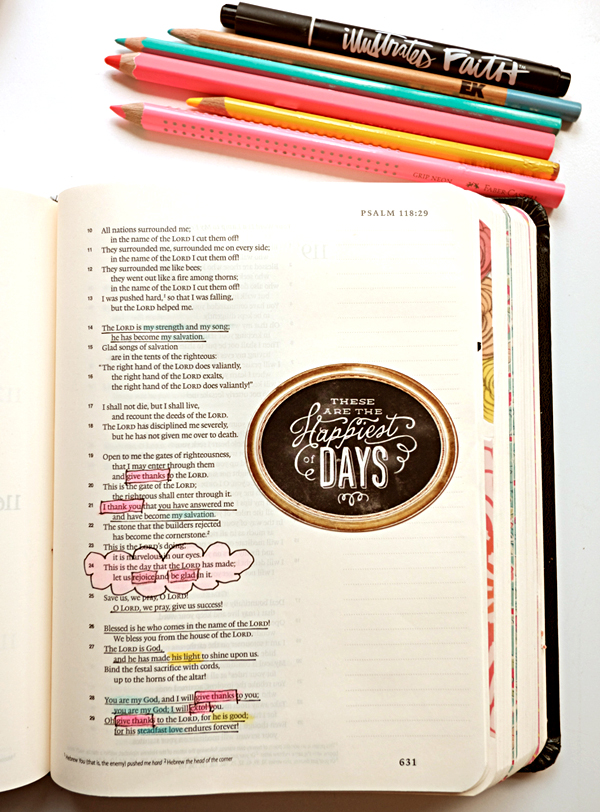 illustrated FAITH™
EK
GRIP NEON
FABER-CASTELL
PSALM 118:29
10 All nations surrounded me;
in the name of the LORD I cut them off!
11 They surrounded me, surrounded me on every side;
in the name of the LORD I cut them off!
12 They surrounded me like bees;
they went out like a fire among thorns;
in the name of the LORD I cut them off!
13 I was pushed hard,¹ so that I was falling,
but the LORD helped me.
14 The LORD is my strength and my song;
he has become my salvation.
15 Glad songs of salvation
are in the tents of the righteous:
"The right hand of the LORD does valiantly,
16 the right hand of the LORD exalts,
the right hand of the LORD does valiantly!"
17 I shall not die, but I shall live,
and recount the deeds of the LORD.
18 The LORD has disciplined me severely,
but he has not given me over to death.
19 Open to me the gates of righteousness,
that I may enter through them
and give thanks to the LORD.
20 This is the gate of the LORD;
the righteous shall enter through it.
21 I thank you that you have answered me
and have become my salvation.
22 The stone that the builders rejected
has become the cornerstone.²
23 This is the LORD's doing;
it is marvelous in our eyes.
24 This is the day that the LORD has made;
let us rejoice and be glad in it.
25 Save us, we pray, O LORD!
O LORD, we pray, give us success!
26 Blessed is he who comes in the name of the LORD!
We bless you from the house of the LORD.
27 The LORD is God,
and he has made his light to shine upon us.
Bind the festal sacrifice with cords,
up to the horns of the altar!
28 You are my God, and I will give thanks to you;
you are my God; I will extol you.
29 Oh give thanks to the LORD, for he is good;
for his steadfast love endures forever!
¹ Hebrew You (that is, the enemy) pushed me hard ² Hebrew the head of the corner
631
THESE
ARE THE
Happiest
of DAYS